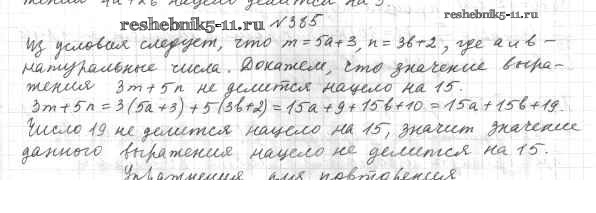 тении 4a+xb нацело делится на 5.
reshebnik5-11.ru №385
reshebnik5-11.ru
Из условия следует, что m=5a+3, n=3b+2, где a и b –
натуральные числа. Докажем, что значение выра-
жения 3m+5n не делится нацело на 15.
3m+5n = 3(5a+3)+5(3b+2)=15a+9+15b+10=15a+15b+19.
Число 19 не делится нацело на 15, значит значение
данного выражения нацело не делится на 15.
Упражнения для повторения